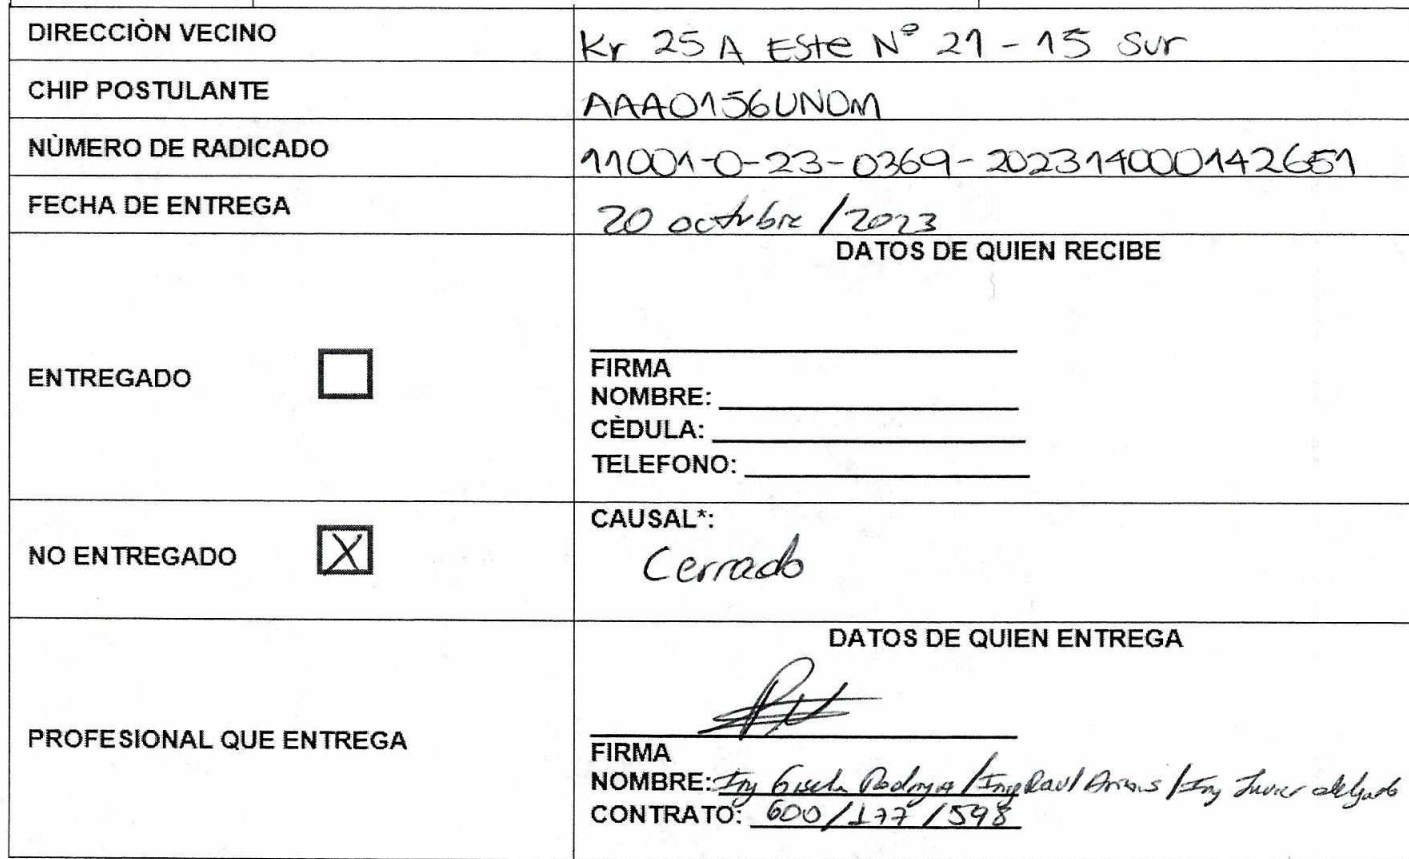 DIRECCIÒN VECINO Kr 25 A Este N° 21 - 15 Sur
CHIP POSTULANTE AAA0156UNOM
NÙMERO DE RADICADO 11001-0-23-0369-20231400142651
FECHA DE ENTREGA 20 octubre /2023
DATOS DE QUIEN RECIBE
ENTREGADO
FIRMA
NOMBRE:
CÈDULA:
TELEFONO:
NO ENTREGADO X
CAUSAL*:
Cerrado
DATOS DE QUIEN ENTREGA
PROFESIONAL QUE ENTREGA
FIRMA
NOMBRE: Ing Gisela / Ing Raul Arias / Ing Javier delgado
CONTRATO: 600/177/598